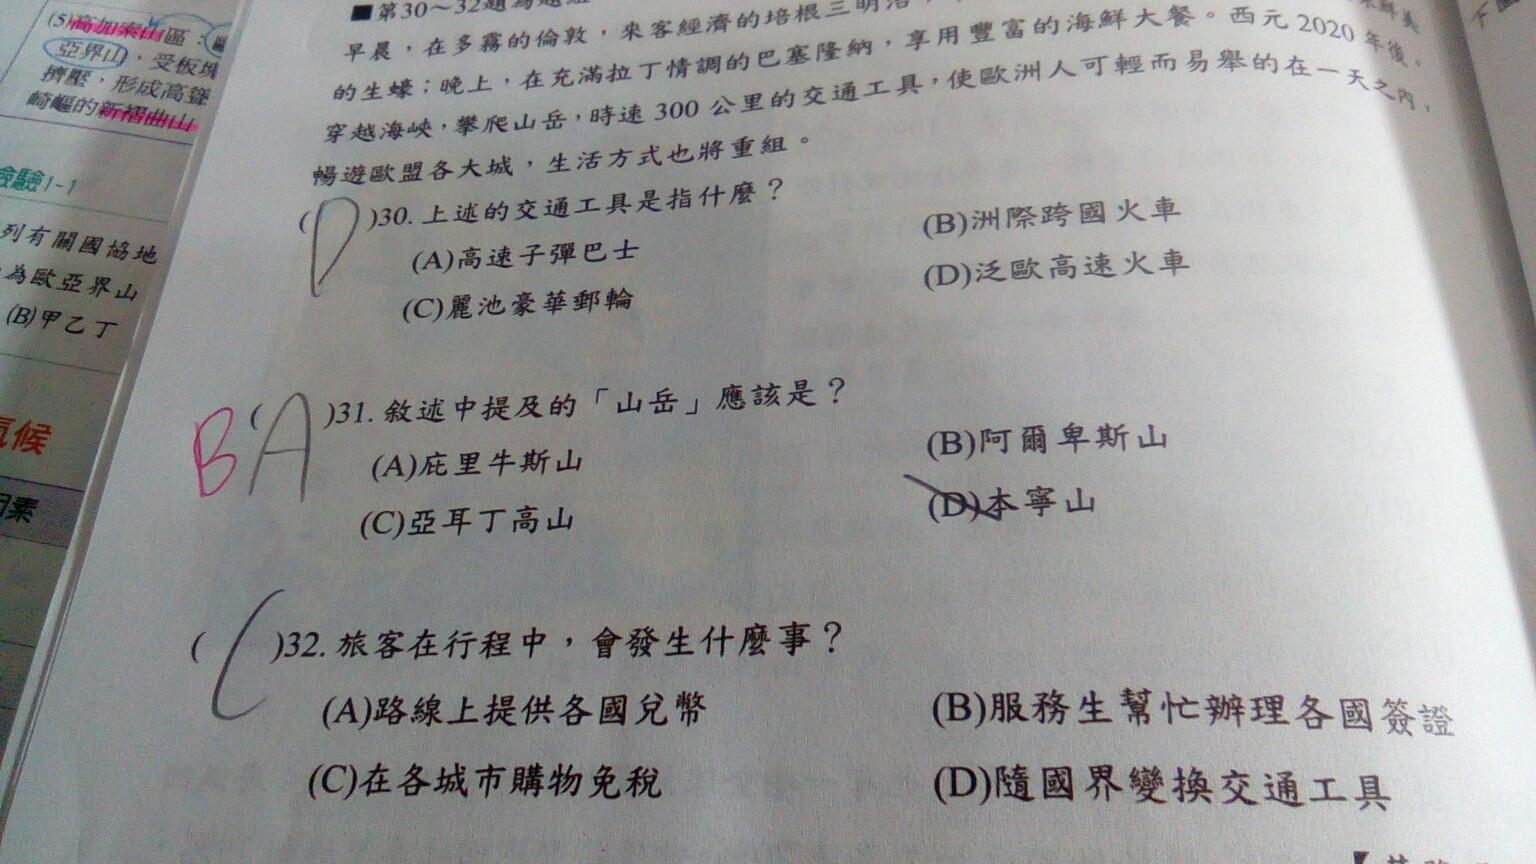 (5)高加索山區：
亞界山，受板塊
擠壓，形成高聳
崎嶇的新褶曲山
檢驗1-1
列有關國協地
為歐亞界山
(B)甲乙丁
氣候
因素
■第30～32題為題組
早晨，在多霧的倫敦，來客經濟的培根三明治，
的生蠔；晚上，在充滿拉丁情調的巴塞隆納，享用豐富的海鮮大餐。西元2020年後，
穿越海峽，攀爬山岳，時速300公里的交通工具，使歐洲人可輕而易舉的在一天之內，
暢遊歐盟各大城，生活方式也將重組。
( D )30. 上述的交通工具是指什麼？
(A)高速子彈巴士 (B)洲際跨國火車
(C)麗池豪華郵輪 (D)泛歐高速火車
B ( A )31. 敘述中提及的「山岳」應該是？
(A)庇里牛斯山 (B)阿爾卑斯山
(C)亞耳丁高山 (D)本寧山
( C )32. 旅客在行程中，會發生什麼事？
(A)路線上提供各國兌幣 (B)服務生幫忙辦理各國簽證
(C)在各城市購物免稅 (D)隨國界變換交通工具